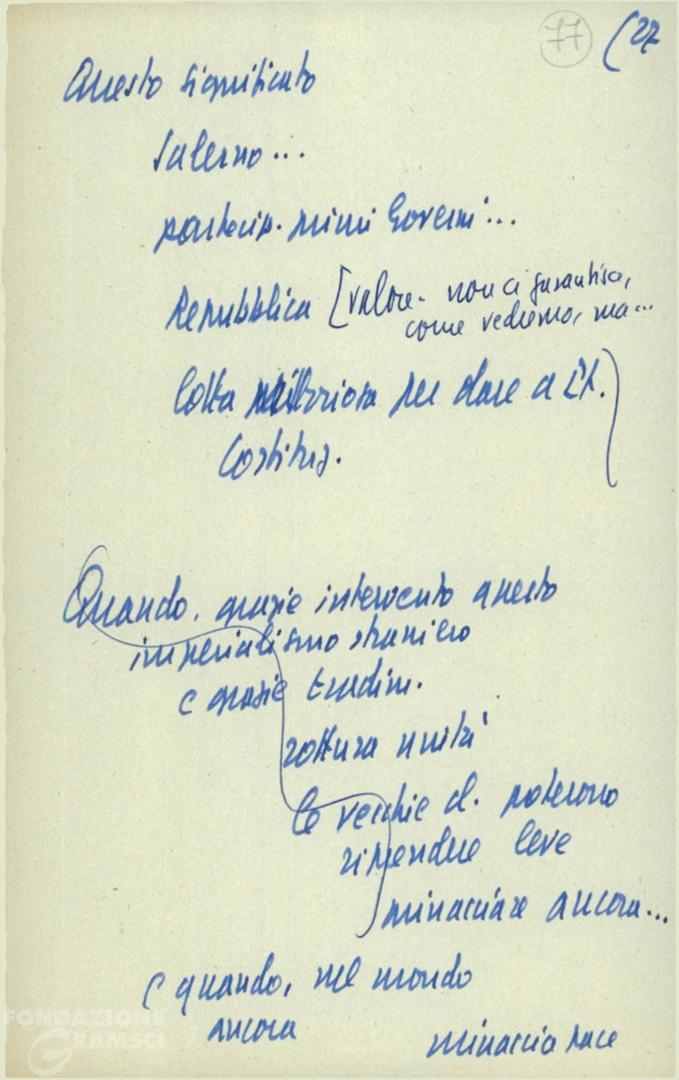 77 (27
Questo significato
Salerno...
partecip. primi Governi...
Repubblica [valore. non ci garantisce,
come vedremo, ma...
lotta per dare a l'I.
Costituz.
Quando, grazie intervento questo
imperialismo straniero
e grazie tradim.
rottura unità
le vecchie cl. poterono
riprendere leve
minacciare ancora...
e quando, nel mondo
ancora
minaccia pace
FONDAZIONE
GRAMSCI